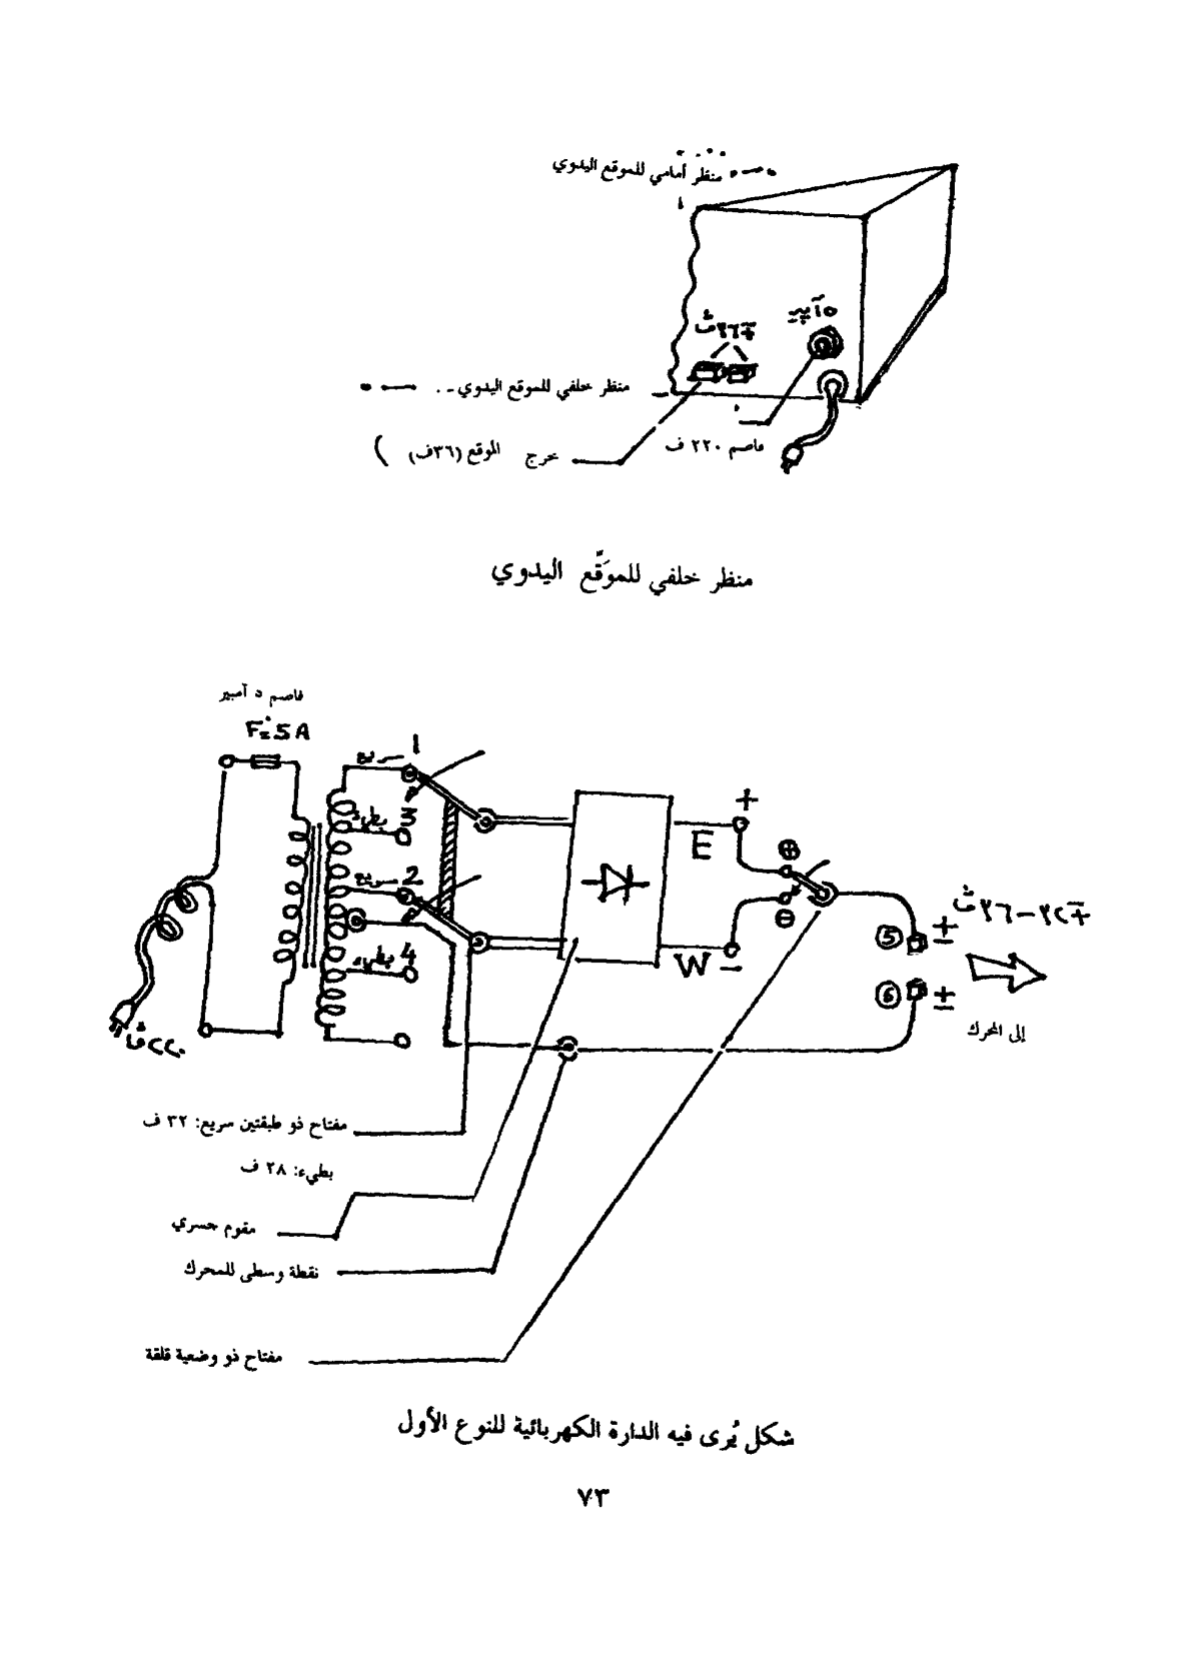 منظر أمامي للموقع اليدوي
٥ آمبير
∓٣٦ ڤ
منظر خلفي للموقع اليدوي
فاصم ٢٢٠ ف
خرج الموقع (٣٦ف)
منظر خلفي للموَقّع اليدوي
فاصم ٥ آمبير
F=5A
سريع 1
بطيء 3
سريع 2
بطيء 4
+
E
W
−
⊕
⊖
⑤ ±
⑥ ±
إلى المحرك
٢٢٠ڤ
مفتاح ذو طبقتين سريع: ٣٢ ف
بطيء: ٢٨ ف
مقوم جسري
نقطة وسطى للمحرك
مفتاح ذو وضعية قلقة
شكل يُرى فيه الدارة الكهربائية للنوع الأول
٧٣